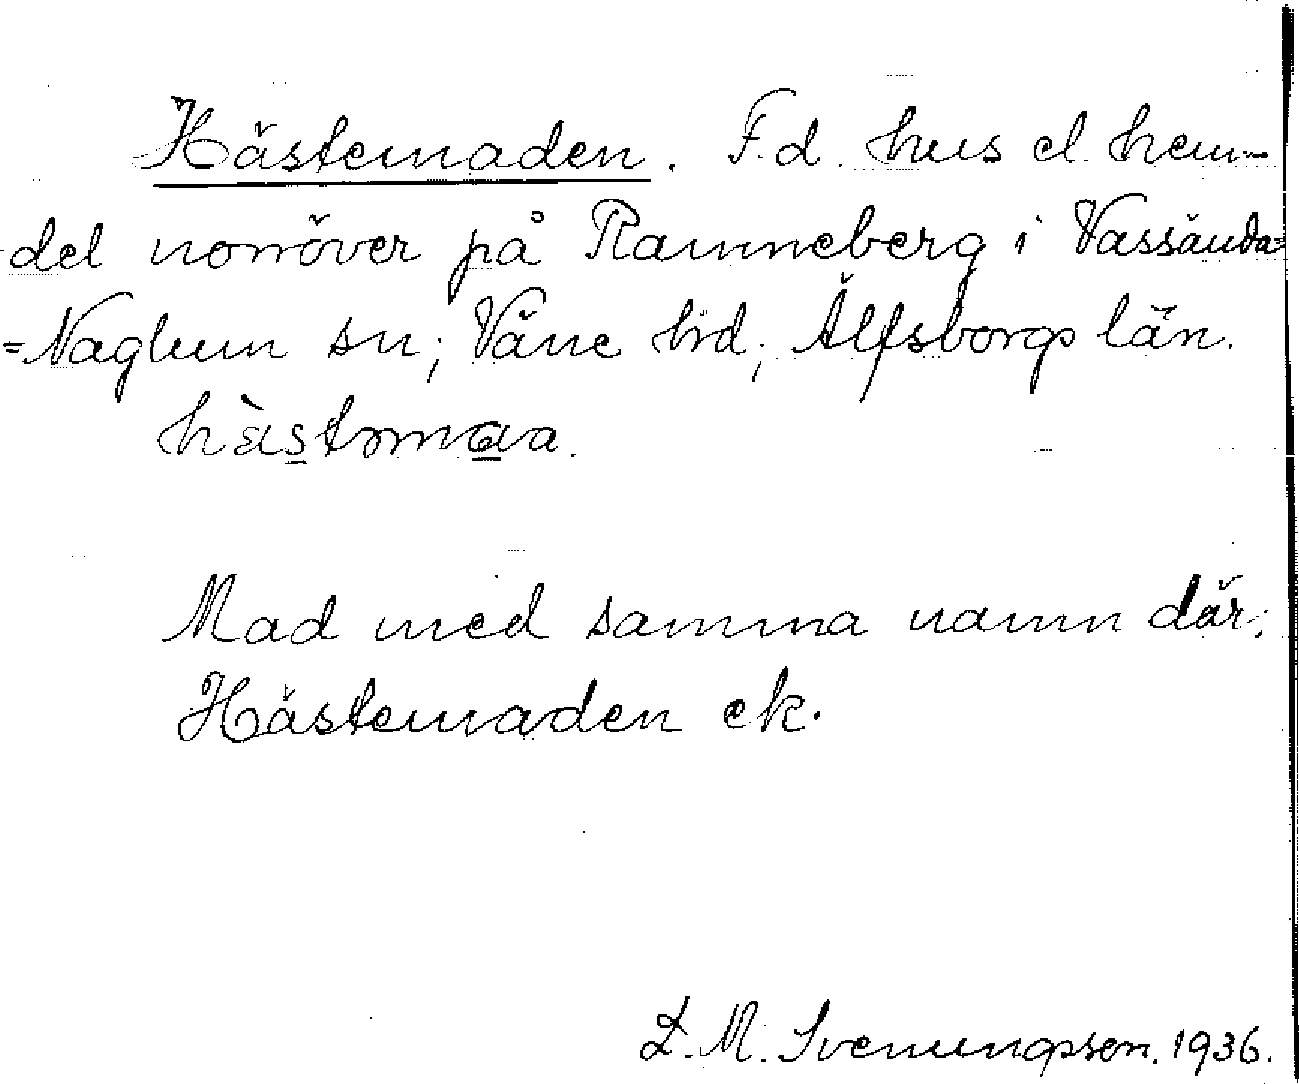 Hästemaden. F.d. hus el. hem-
del norröver på Ranneberg i Vassända=
=Naglum sn; Väne hd; Älfsborgs län.
hàstəmaa.
Mad med samma namn där;
Hästemaden ek.
L. M. Svenungsson. 1936.